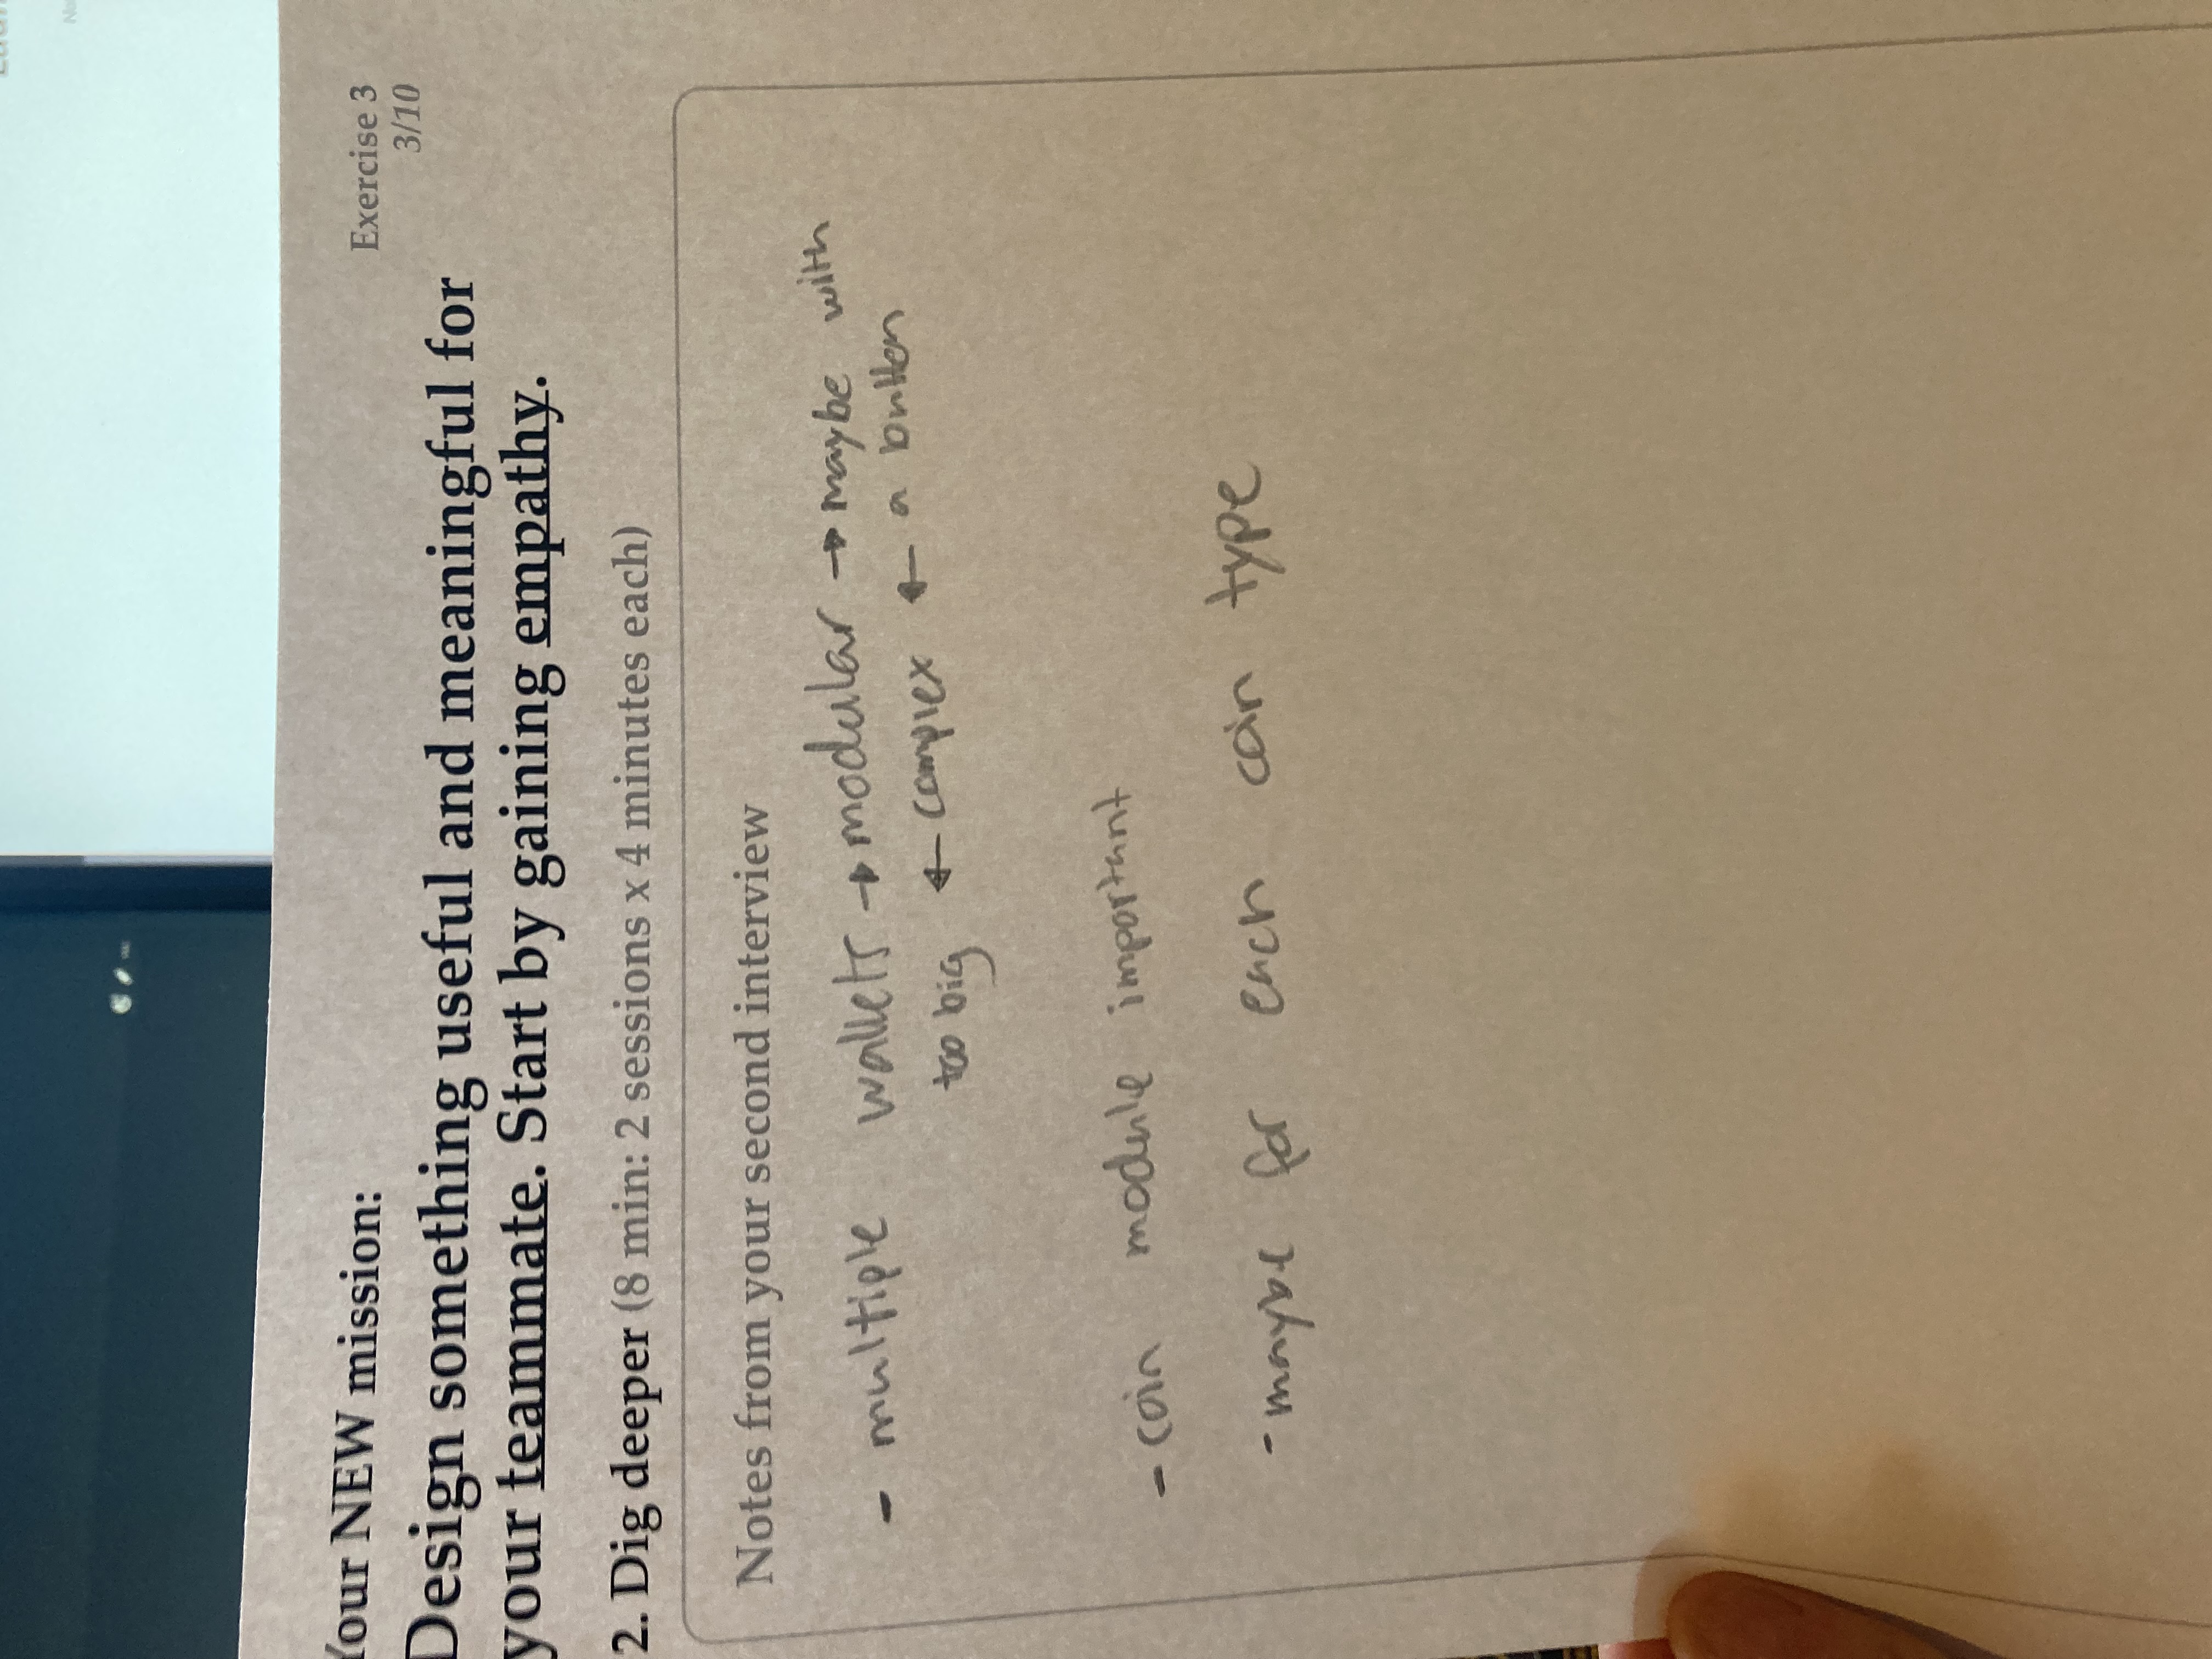 Your NEW mission:
Exercise 3
3/10
Design something useful and meaningful for
your teammate. Start by gaining empathy.
2. Dig deeper (8 min: 2 sessions x 4 minutes each)
Notes from your second interview
- multiple wallets → modular → maybe with
too big ← complex ← a button
- coin module important
- maybe for each coin type